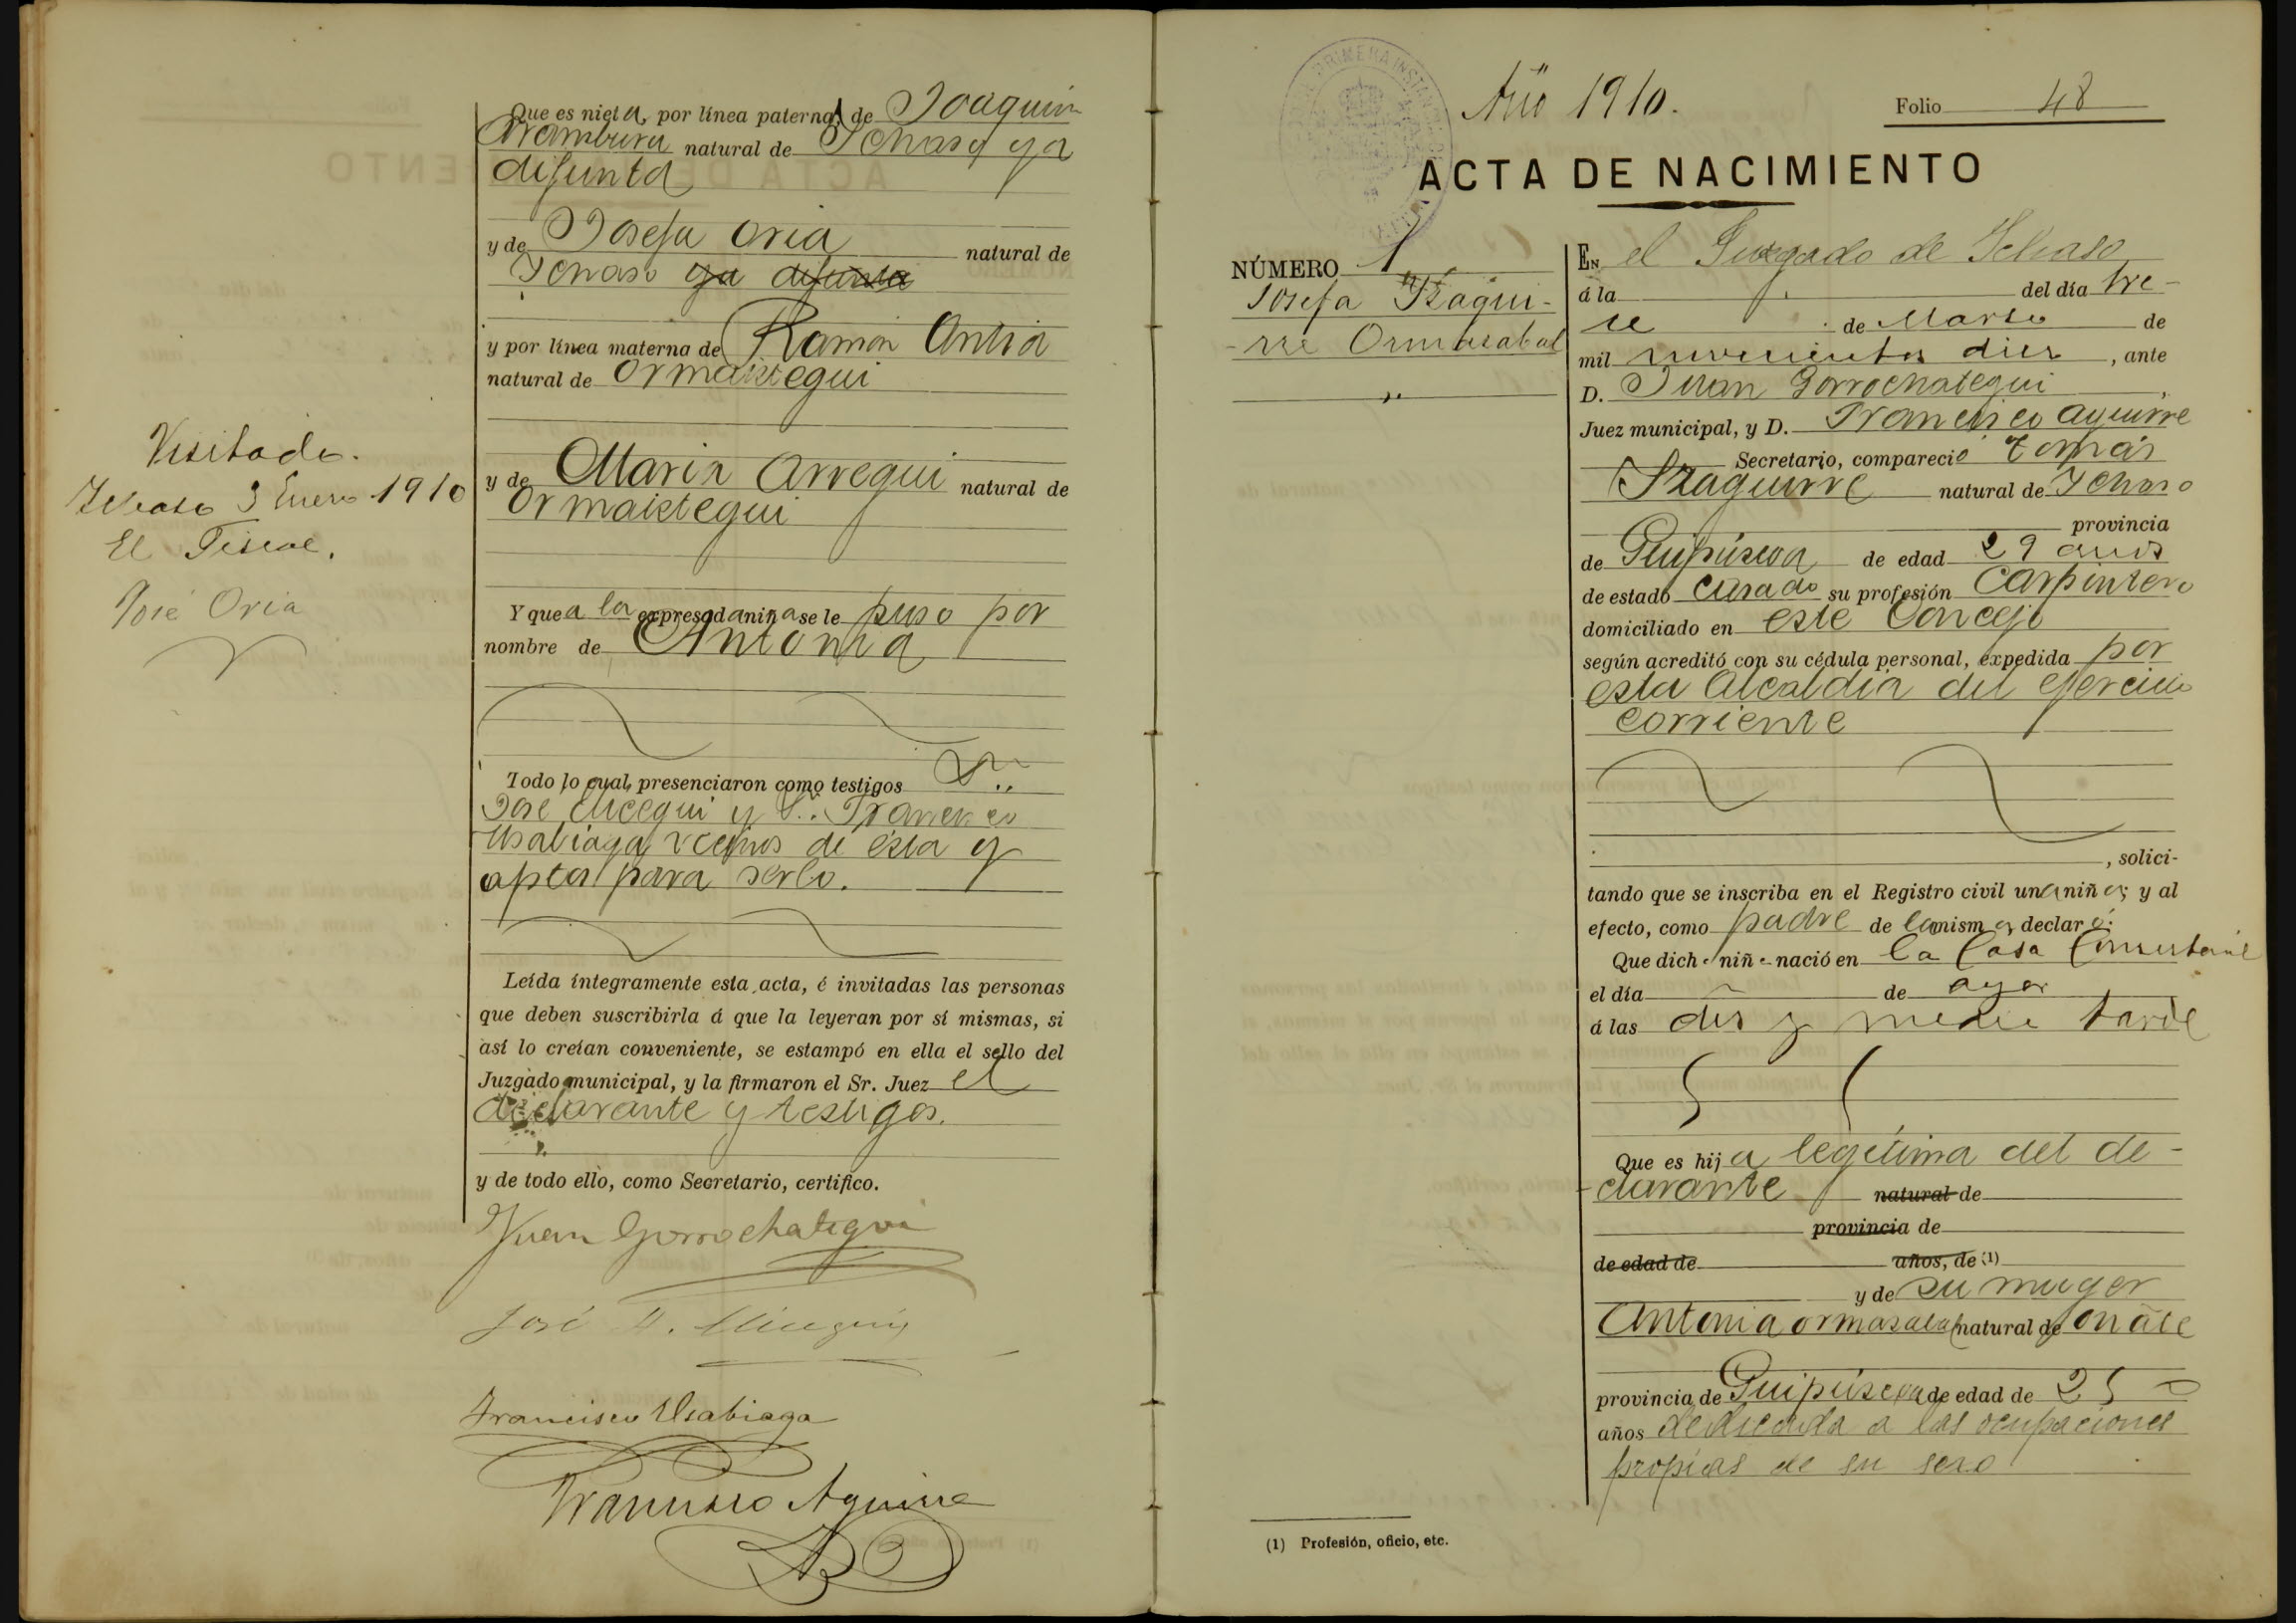 Que es nieta, por línea paterna, de Joaquin
Aramburu natural de Ichaso ya
difunto
y de Josefa Oria natural de
Ichaso ya difunta
y por línea materna de Ramón Antia
natural de Ormaiztegui
y de Maria Arregui natural de
Ormaiztegui
Visitado.
Ichaso 3 Enero 1910
El Fiscal,
José Oria
Y que a la expresada niña se le puso por
nombre de Antonia
Todo lo cual, presenciaron como testigos Dn.
José y Dn. Francisco
Usabiaga vecinos de ésta y
aptos para serlo.
Leída íntegramente esta acta, é invitadas las personas
que deben suscribirla á que la leyeran por sí mismas, si
así lo creían conveniente, se estampó en ella el sello del
Juzgado municipal, y la firmaron el Sr. Juez el
declarante y testigos.
y de todo ello, como Secretario, certifico.
Juan Gorrochategui
José
Francisco Usabiaga
Francisco Aguirre
Año 1910.
Folio 48
ACTA DE NACIMIENTO
NÚMERO 1
Josefa Izagui-
-rre Ormasabal
En el Juzgado de Ichaso
á la del día tre-
ce de Marzo de
mil novecientos diez, ante
D. Juan Gorrochategui
Juez municipal, y D. Francisco Aguirre
Secretario, compareció Tomás
Izaguirre natural de Ichaso
provincia
de Guipúzcoa de edad 29 años
de estado casado su profesión Carpintero
domiciliado en este Concejo
según acreditó con su cédula personal, expedida por
esta Alcaldia del ejercicio
corriente
, solici-
tando que se inscriba en el Registro civil una niña; y al
efecto, como padre de la misma, declaró:
Que dicha niña nació en la Casa Consistorial
el día de ayer
á las dos y media tarde
Que es hija legítima del de-
-clarante natural de
provincia de
de edad de años, de (1)
y de su muger
Antonia Ormasabal natural de Oñate
provincia de Guipúzcoa de edad de 25
años dedicada a las ocupaciones
propias de su sexo
(1) Profesión, oficio, etc.